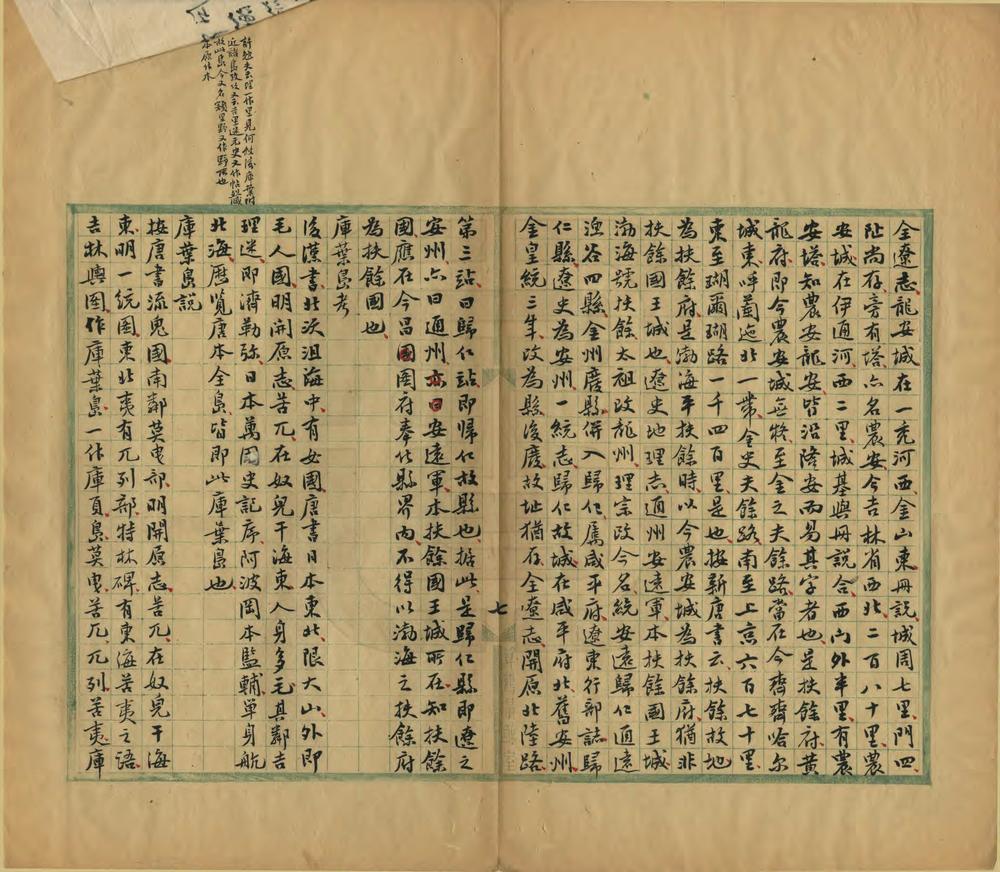 全遼志龍安城在一禿河西金山東冊説城周七里門四
阯尚存旁有塔亦名農安今吉林省西北二百八十里農
安城在伊通河西二里城基與冊説合西山外半里有農
安塔知農安龍安皆沿隆安而易其字者也是扶餘府黄
龍府即今農安城無疑至金之夫餘路當在今齊齊哈尔
城東呼蘭迤北一帶金史夫餘路南至上京六百七十里
東至瑚爾瑚路一千四百里是也按新唐書云扶餘故地
為扶餘府是渤海平扶餘時以今農安城為扶餘府猶非
扶餘國王城也遼史地理志通州安遠軍本扶餘國王城
渤海號扶餘太祖改龍州理宗改今名統安遠歸仁通遠
漁谷四縣金州廢縣併入歸仁屬咸平府遼東行部誌歸
仁縣遼史為安州一統志歸仁故城在咸平府北舊安州
金皇統三年改為縣後廢故址猶存全遼志開原北陸路
七
第三站曰歸仁站即歸仁故縣也據此是歸仁縣即遼之
安州亦曰通州亦曰安遠軍本扶餘國王城所在知扶餘
國應在今昌圖府奉化縣界内不得以渤海之扶餘府
為扶餘國也
庫葉島考
後漢書北沃沮海中有女國唐書日本東北限大山外即
毛人國明開原志苦兀在奴兒干海東人身多毛其鄰吉
理迷即濟勒弥日本萬國史記序阿波岡本監輔單身航
北海歷覧唐本全島皆即此庫葉島也
庫葉島説
按唐書流鬼國南鄰莫曳部明開原志苦兀在奴兒干海
東明一統圖東北夷有兀列部特林碑有東海苦夷之語
吉林輿圖作庫葉島一作庫頁島莫曳苦兀兀列苦夷庫